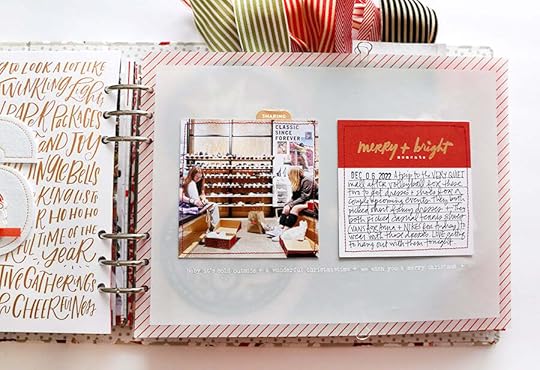 TO LOOK A LOT LIKE
TWINKLING lights
PAPER PACKAGES
AND JOY
JINGLE BELLS
MAKING LISTS
OR HO HO HO
FUL TIME OF THE
YEAR
TIVE GATHERINGS
CHEERFULNESS
SHARING
CLASSIC
SINCE
FOREVER
merry + bright
moments
DEC 06 2022 A trip to the VERY QUIET
mall after volleyball for these
two to get dresses + shoes for a
couple upcoming events. They both
picked short dresses + they
both picked casual tennis shoes
(VANS for + NIKES for ) to
wear with those dresses. LOVE getting
to hang out with them tonight.
baby it's cold outside + a wonderful christmastime + we wish you a merry christmas +